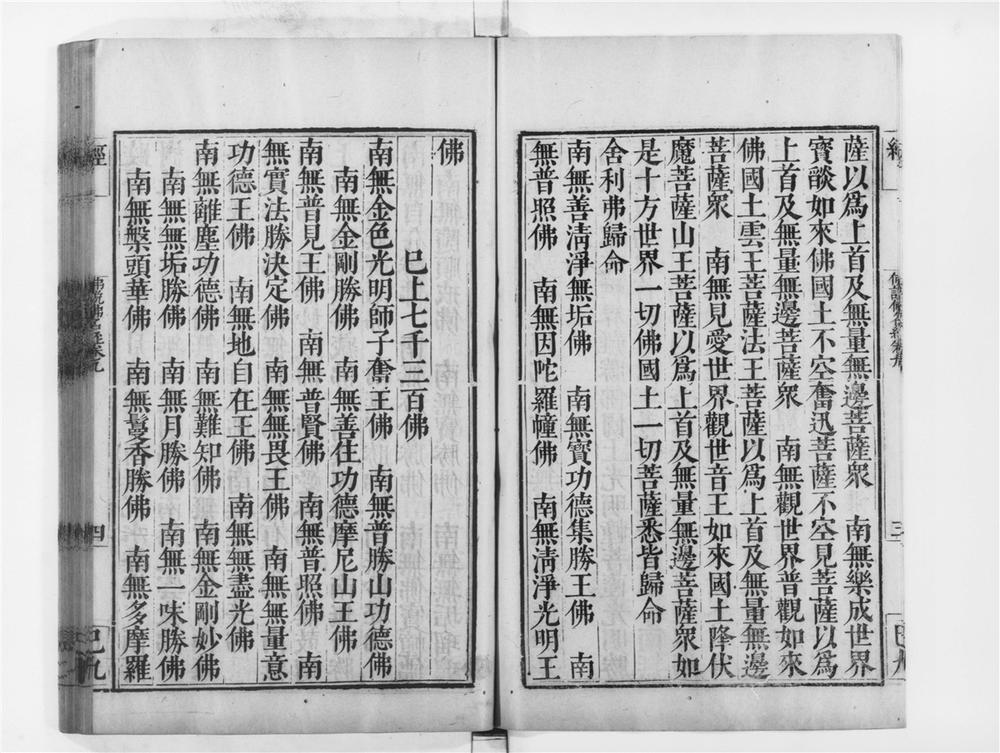 薩以爲上首及無量無邊菩薩衆　南無樂成世界
寳談如來佛國土不空奮迅菩薩不空見菩薩以爲
上首及無量無邊菩薩衆　南無觀世界普觀如來
佛國土雲王菩薩法王菩薩以爲上首及無量無邊
菩薩衆　南無見愛世界觀世音王如來國土降伏
魔菩薩山王菩薩以爲上首及無量無邊菩薩衆如
是十方世界一切佛國土一切菩薩悉皆歸命
舍利弗歸命
南無善清淨無垢佛　南無寶功德集勝王佛　南
無普照佛　南無因陀羅幢佛　南無清淨光明王
三
佛
巳上七千三百佛
南無金色光明師子奮王佛　南無普勝山功德佛
南無金剛勝佛　南無善住功德摩尼山王佛
南無普見王佛　南無普賢佛　南無普照佛　南
無實法勝決定佛　南無無畏王佛　南無無量意
功德王佛　南無地自在王佛　南無無盡光佛
南無離塵功德佛　南無難知佛　南無金剛妙佛
南無無垢勝佛　南無月勝佛　南無一味勝佛
南無槃頭華佛　南無鬘香勝佛　南無多摩羅
經
佛説佛名經卷九
四
巳九